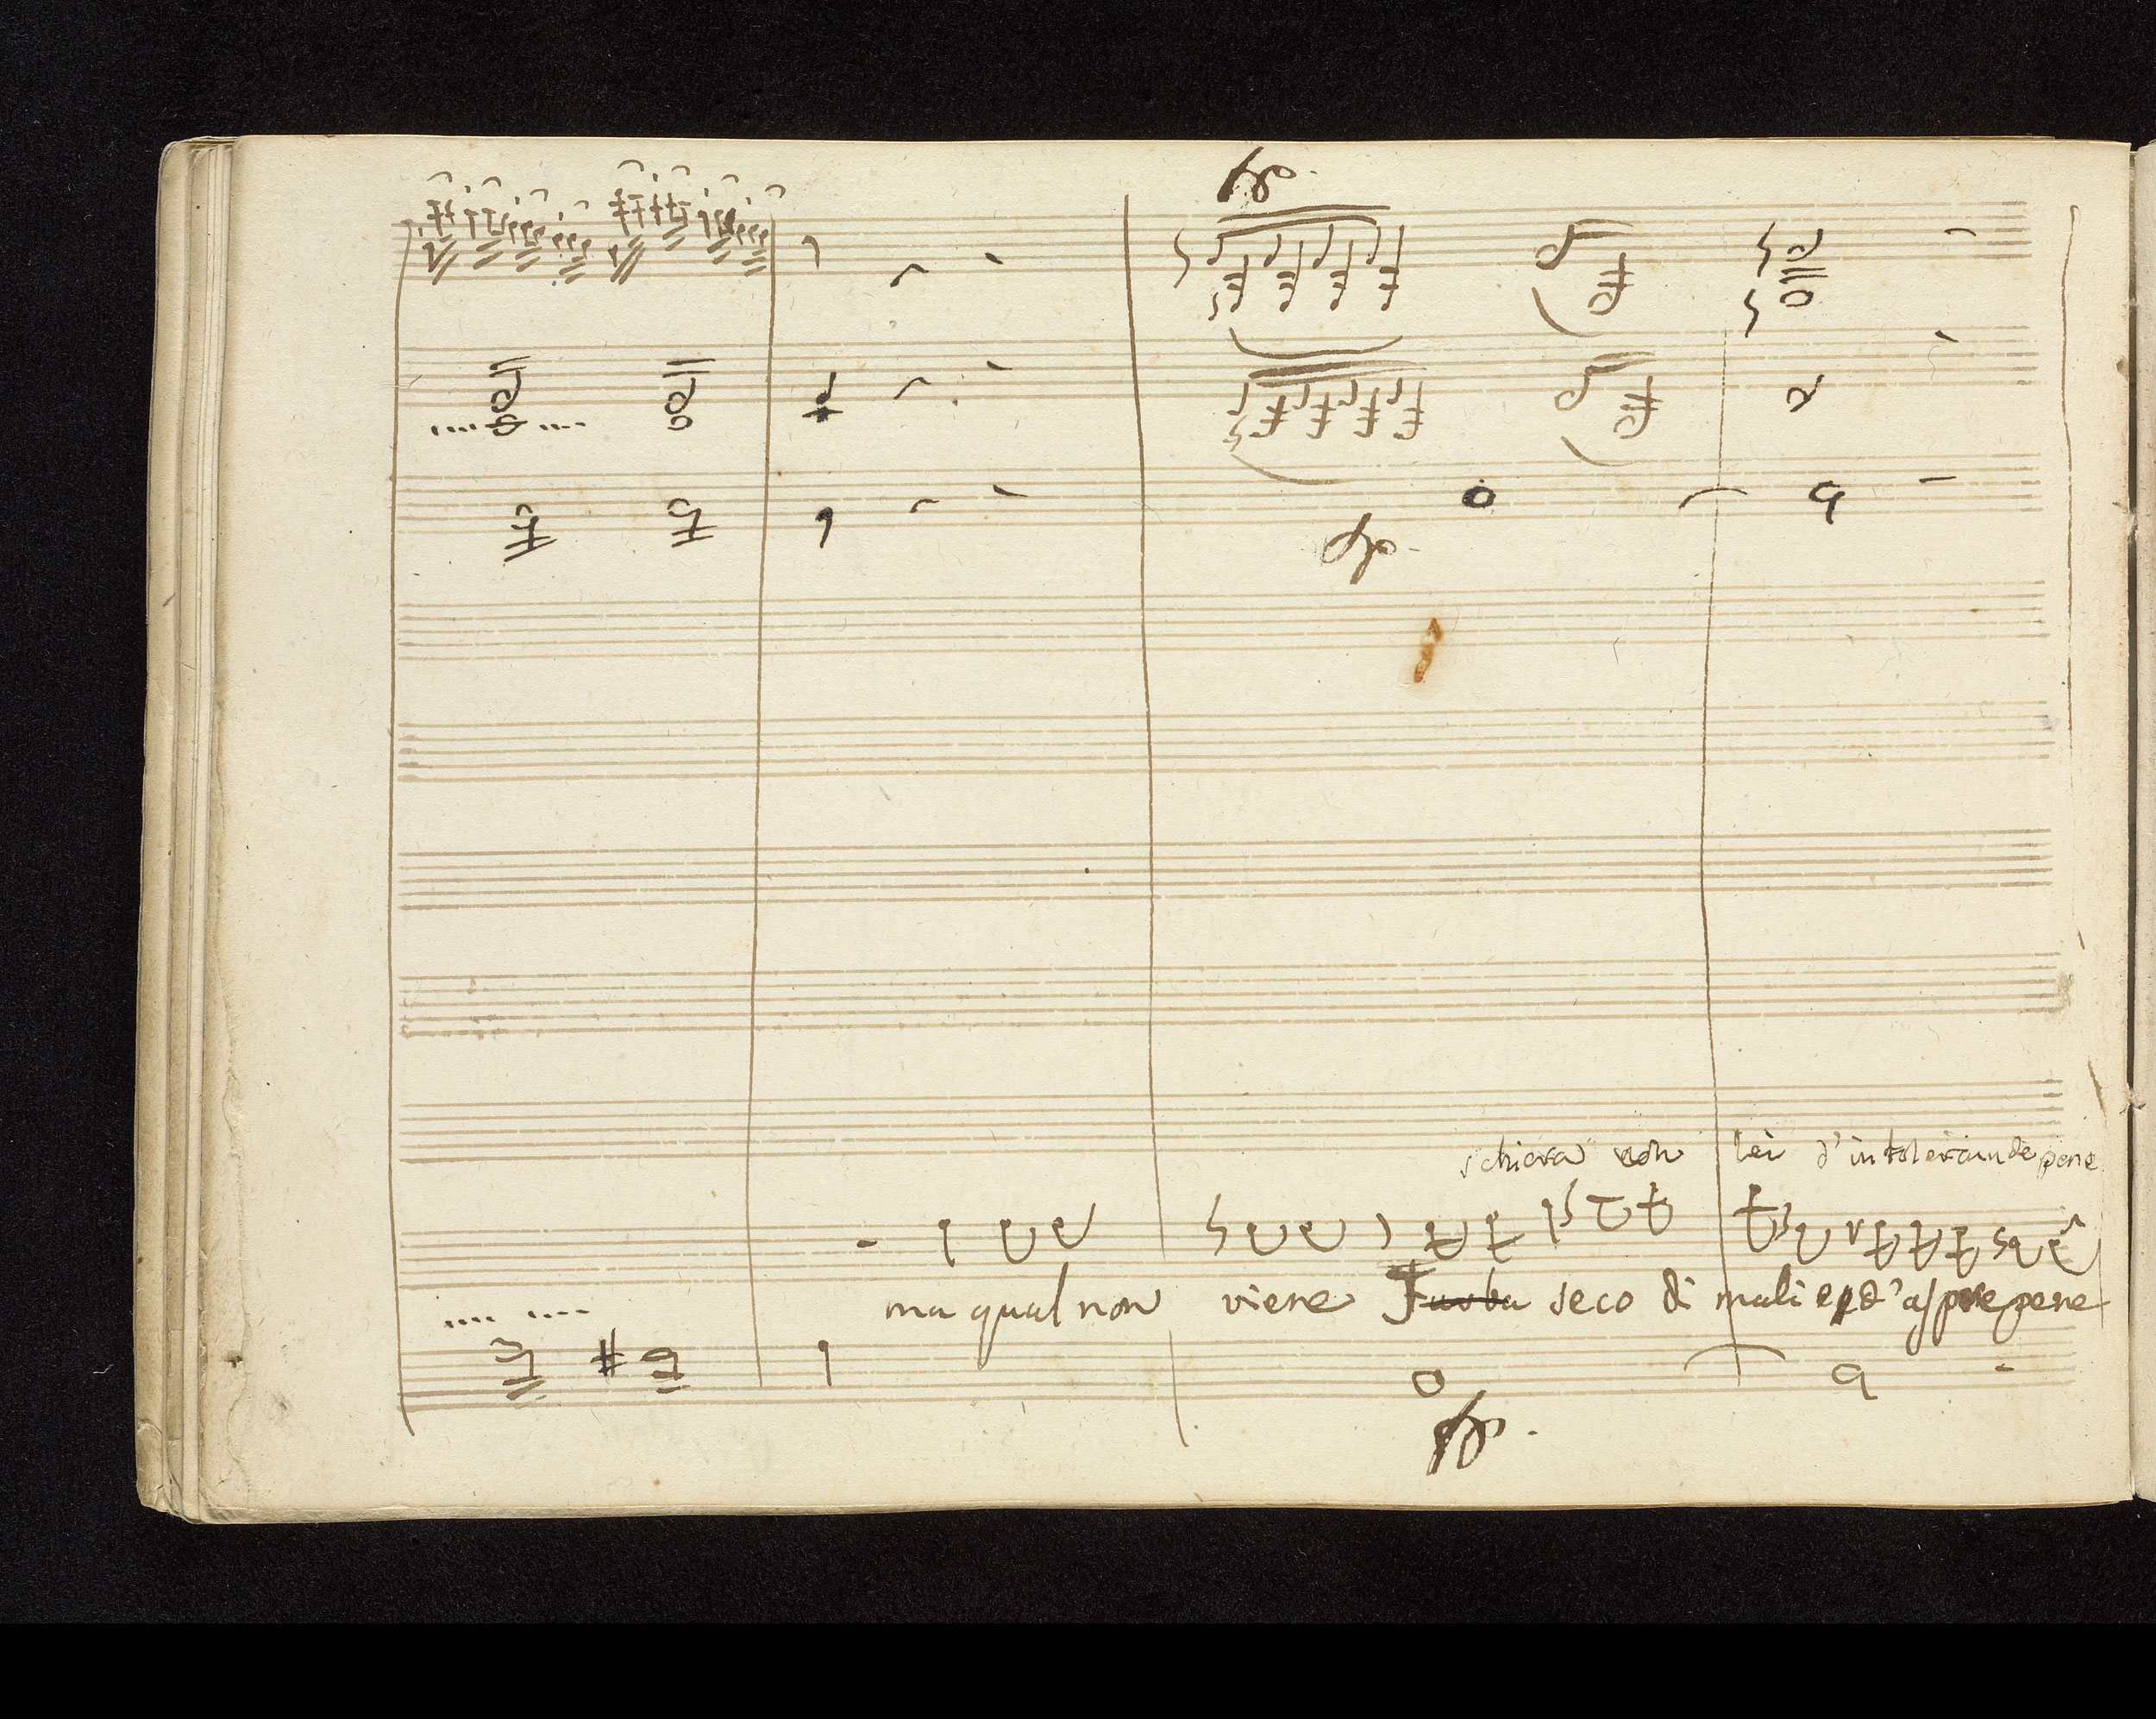 fp.
fp.
schiera con lei d'intolerande pene
ma qual non viene Turba seco di mali e d'aspre pene
fp.